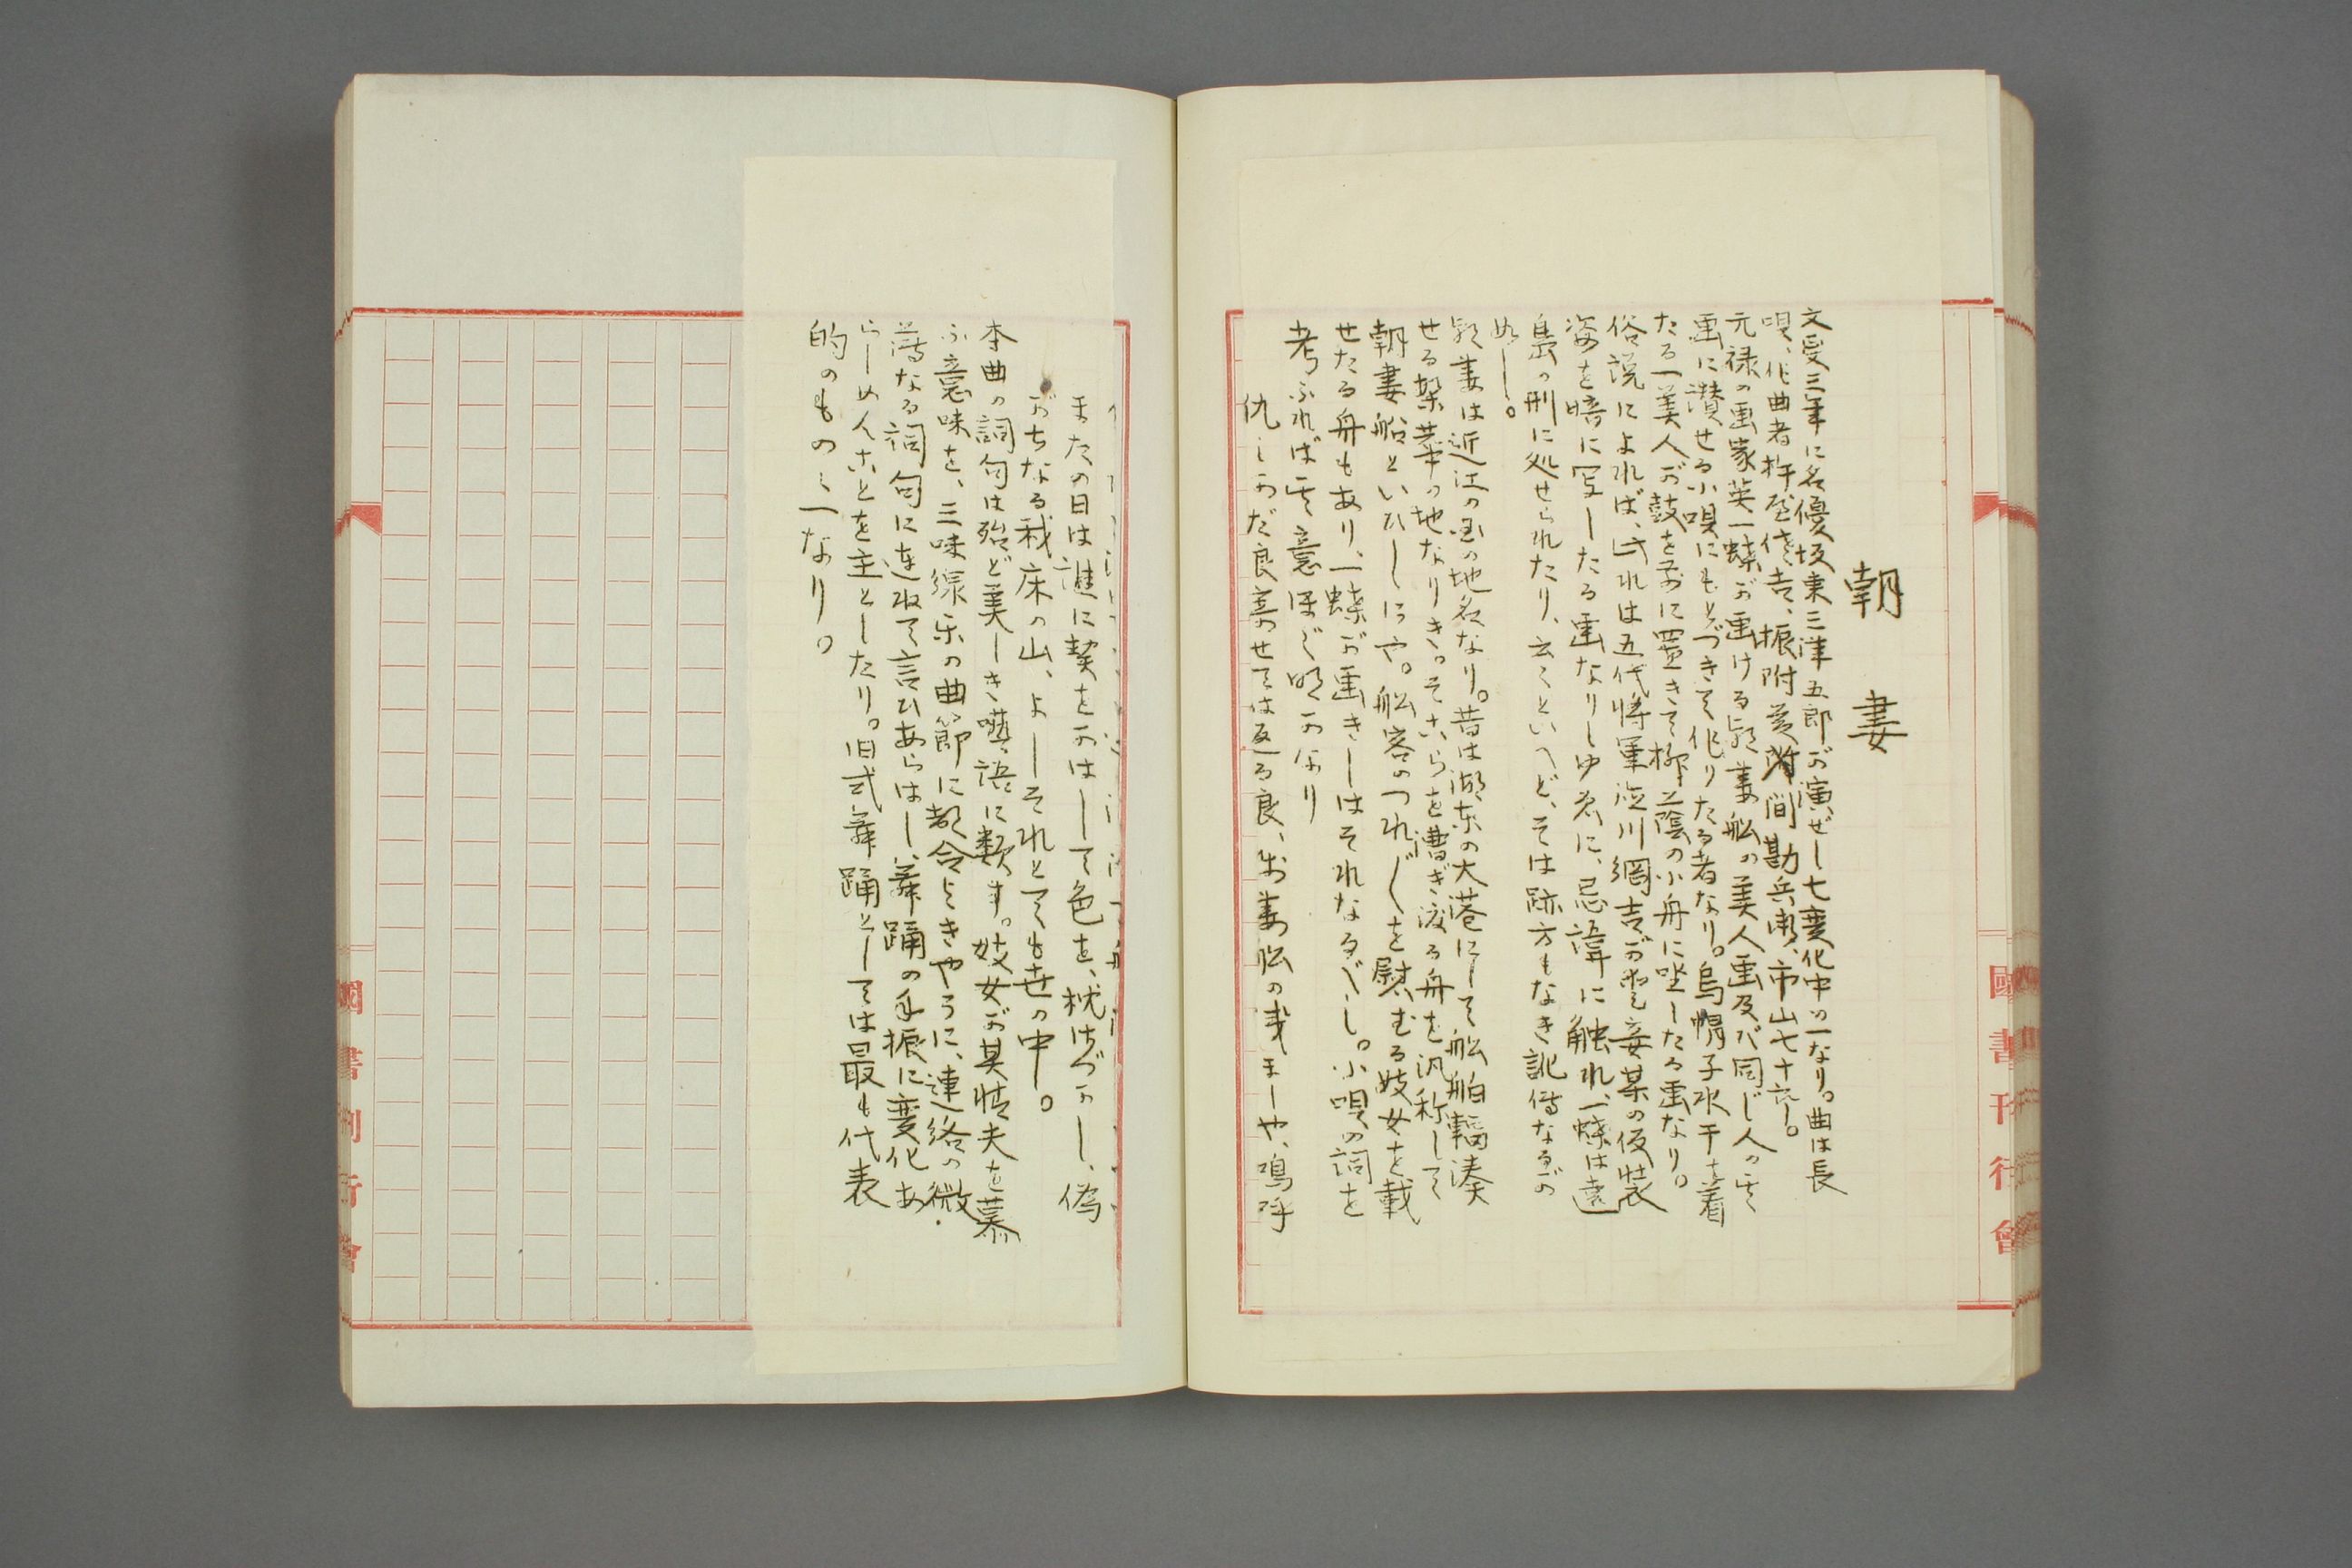 朝妻
文愛三年に名優坂東三津五郎が演ぜし七変化中の一なり。曲は長
唄、作曲者杵屋佐吉、振附は藤間勘兵衛、市山七十六し。
元禄の画家英一蝶が画ける朝妻船の美人画及バ同じ人の其
画に讃せる小唄にもとづきて作りたる者なり。烏帽子水干を着
たる一美人が鼓を前に置きて柳蔭の小舟に坐したる画なり。
俗説によれば、此れは五代将軍徳川綱吉が愛妾某の仮装
姿を暗に写したる画なりしゆゑに、忌諱に触れ、一蝶は遠
島の刑に処せられたり、云々といへど、そは跡方もなき訛伝なるが
如し。
朝妻は近江の国の地名なり。昔は湖東の大港にして船舶輻湊
せる繁華の地なりき。そこらを漕ぎ渡る舟を汎称して
朝妻船といひしにや。船客のつれ〴〵を慰むる妓女を載
せたる舟もあり、一蝶が画きしはそれなるべし。小唄の詞を
考ふれば其意ほぼ明かなり
仇しあだ良寄せては返る良、朝妻船の浅ましや、嗚呼
またの日は誰に契をかはして色を、枕はづかし、偽
がちなる我床の山、よしそれとても世の中。
本曲の詞句は殆ど美しき囈語に類す。妓女が其情夫を慕
ふ意味を、三味線楽の曲節に都合よきやうに、連絡の微
薄なる詞句に連ねて言ひあらはし、舞踊の手振に変化あ
らしめんことを主としたり。旧式舞踊としては最も代表
的のものゝ一なり。
國書刊行會
國書刊行會